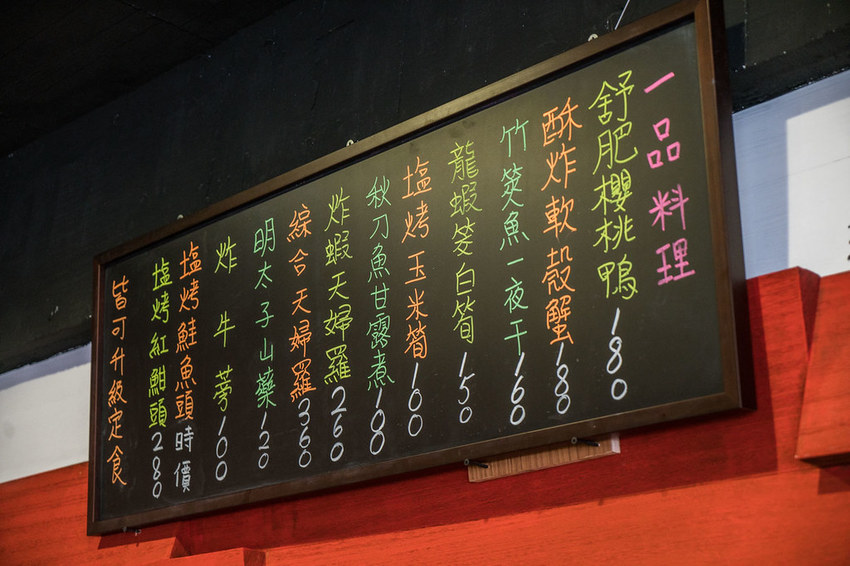 一品料理
舒肥櫻桃鴨180
酥炸軟殼蟹180
竹筴魚一夜干160
龍蝦筊白筍150
塩烤玉米筍100
秋刀魚甘露煮100
炸蝦天婦羅260
綜合天婦羅360
明太子山藥120
炸牛蒡100
塩烤鮭魚頭時價
塩烤紅魽頭280
皆可升級定食